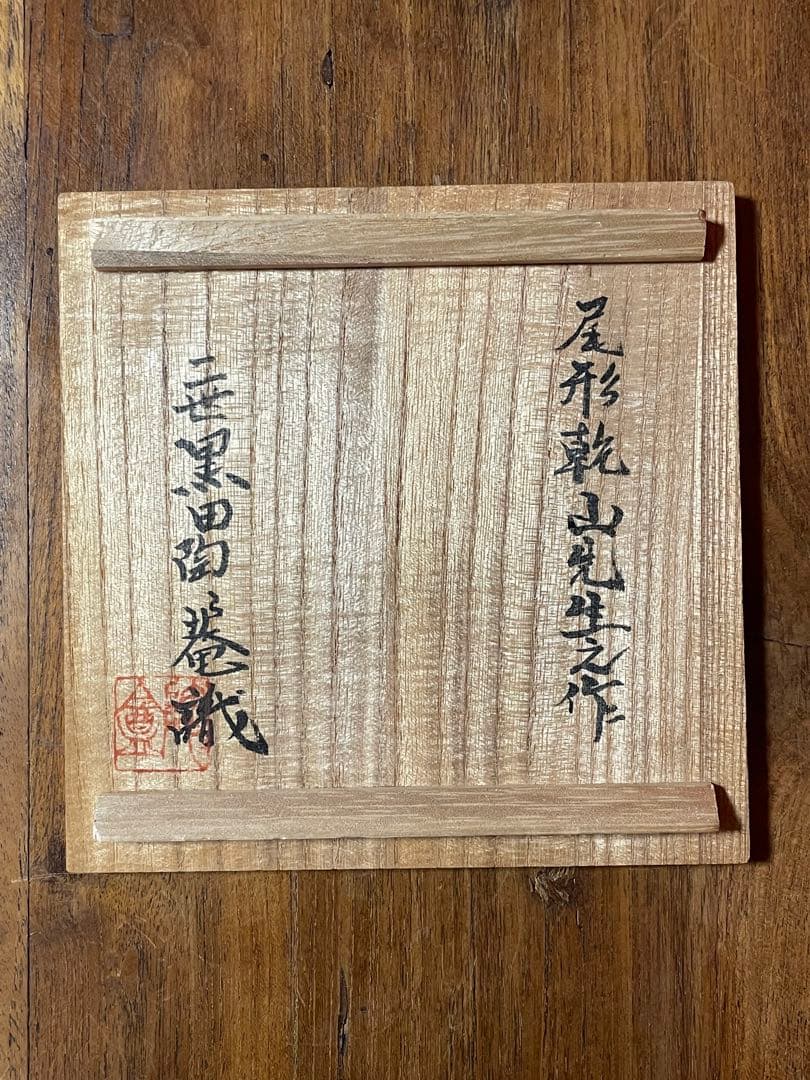 尾形乾山先生之作
二世黒田陶々菴識